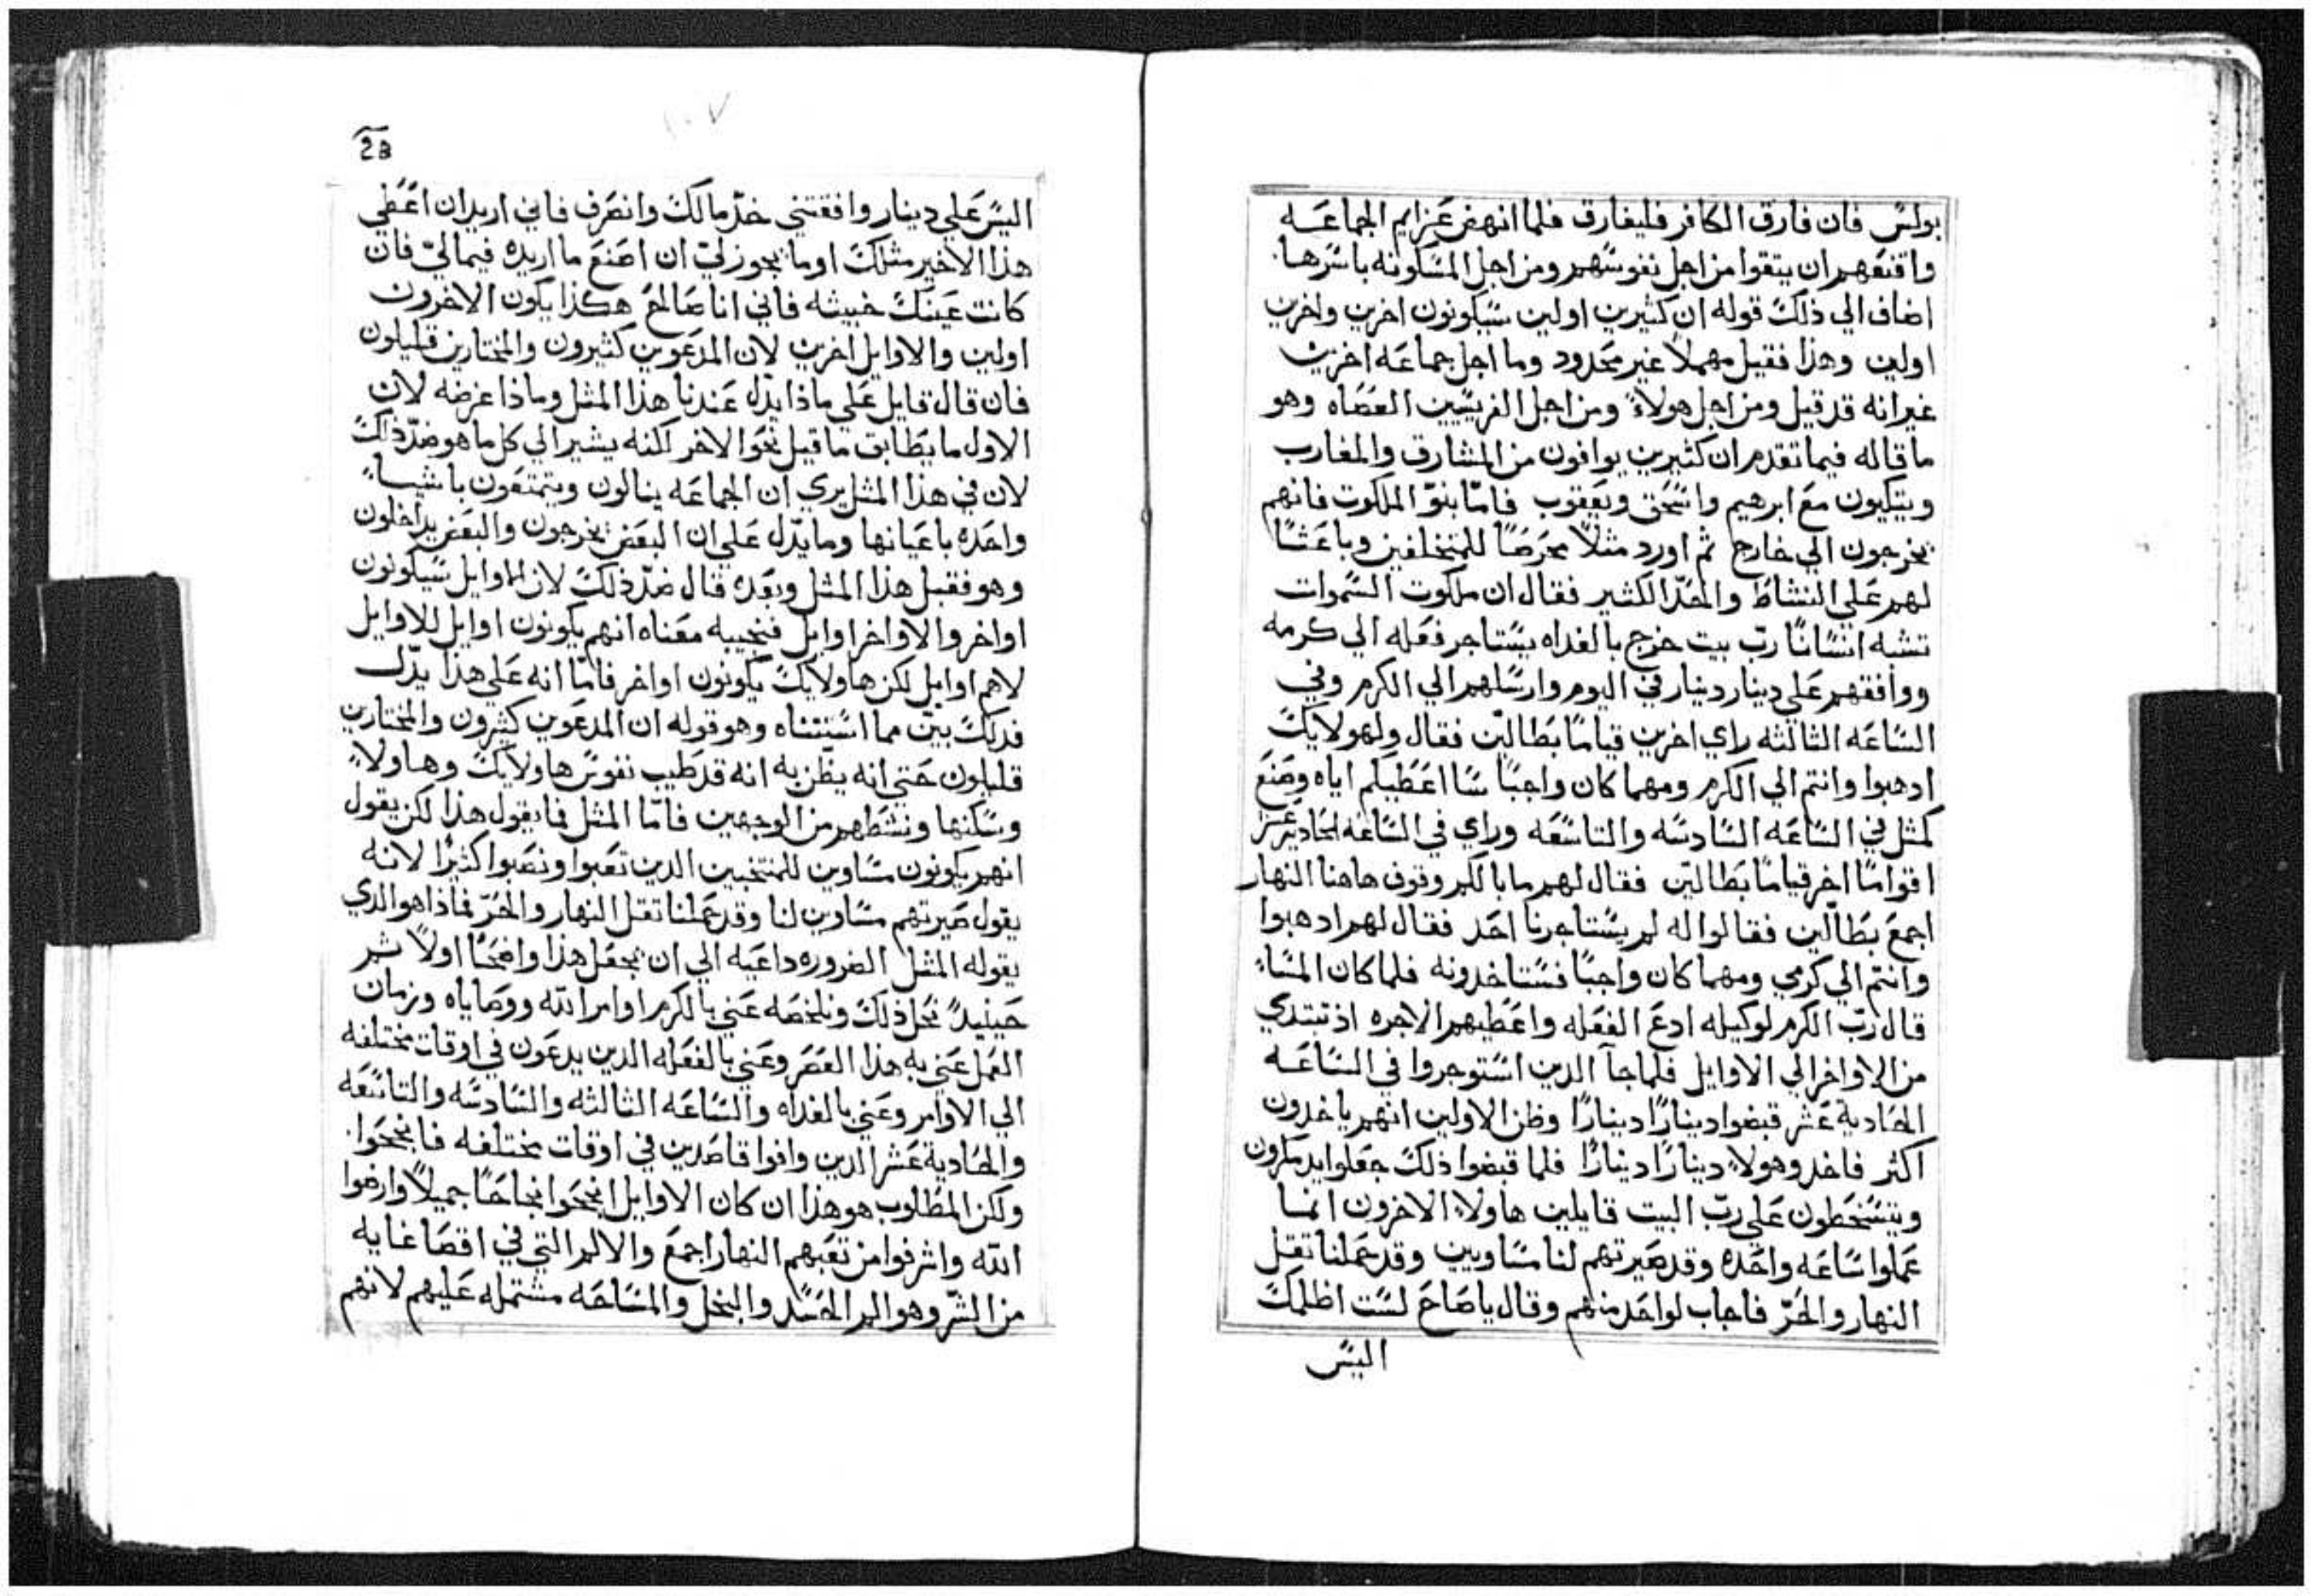 بولس فان فارق الكافر فليفارق فلما انهض عزايم الجماعه
واقنعهم ان يتقوا من اجل نفوسهم ومن اجل المسكونه باسرها
اضاف الي ذلك قوله ان كثيرين اولين سيكونون اخرين واخرين
اولين وهذا فقيل مهملاً غير محدود وما اجل جماعه اخرين
غير انه قد قيل ومن اجل هولاء ومن اجل الفريسيين العصاه وهو
ما قاله فيما تقدم ان كثيرين يوافون من المشارق والمغارب
ويتكيون مع ابرهيم واسحق ويعقوب فامّا بنوّ الملكوت فانهم
يخرجون الي خارج ثم اورد مثلاً محرضاً للمتخلفين وباعثاً
لهم علي النشاط والحدّ الكثير فقال ان ملكوت السموات
تشبه انساناً ربّ بيت خرج بالغداه يستاجر فعله الي كرمه
ووافقهم علي دينار دينار في اليوم وارسلهم الي الكرم وفي
الساعه الثالثه راي اخرين قياماً بطالين فقال ولهولايك
ادهبوا وانتم الي الكرم ومهما كان واجباً سا اعطيكم اياه وصنع
كمثل في الساعه السادسه والتاسعه وراي في الساعه الحاديه عشر
اقواماً اخر قياماً بطالين فقال لهم ما بالكم وقوف هاهنا النهار
اجمع بطالين فقالوا له لم يستاجرنا احد فقال لهم ادهبوا
وانتم الي كرمي ومهما كان واجباً فستاخدونه فلما كان المساء
قال ربّ الكرم لوكيله ادع الفعله واعطيهم الاجره اذ تبتدي
من الاواخر الي الاوايل فلما جآ الدين استوجروا في الساعه
الحادية عشر قبضوا ديناراً ديناراً وظن الاولين انهم ياخدون
اكثر فاخد وهولاء ديناراً ديناراً فلما قبضوا ذلك جعلوا يدمرون
ويتسخطون علي ربّ البيت قايلين هاولاء الاخرون انما
عملوا ساعه واحده وقد صيرتهم لنا مساويين وقد حملنا تقل
النهار والحرّ فاجاب لواحد منهم وقال يا صاح لست اظلمك
اليس
2a
١٠٧
اليس علي دينار وافقتني خدّ مالك وانصرف فاني اريد ان اعطي
هذا الاخير مثلك اوما يجوز ليّ ان اصنع ما اريده فيما ليّ فان
كانت عينك خبيثه فاني انا صالحً هكذا يكون الاخرون
اولين والاوايل اخرين لان المدعوين كثيرون والمختارين قليلون
فان قال قايل علي ماذا يدّل عندنا هذا المثل وماذا غرضه لان
الاول ما يطابق ما قيل نحوا الاخر لكنه يشير الي كل ما هو ضدّ ذلك
لان في هذا المثل يري ان الجماعه ينالون ويتمتعون باشياء
واحده باعيانها وما يدّل علي ان البعض يخرجون والبعض يداخلون
وهو فقبل هذا المثل وبعده قال ضدّ ذلك لان الاوايل سيكونون
اواخر والاواخر اوايل فنجيبه معناه انهم يكونون اوايل للاوايل
لاهم اوايل لكن هاولايك يكونون اواخر فامّا انه علي هذا يدّل
فدلك بيّن مما استتناه وهو قوله ان المدعوين كثيرون والمختارين
قليلون حتي انه يظن به انه قد طيب نفوس هاولايك وهاولاء
وسكنها ونشطهم من الوجهين فامّا المثل فما يقول هذا لكن يقول
انهم يكونون مساوين للمنتخبين الدين تعبوا ونصبوا كثيرًا لانه
يقول صيرتهم مساوين لنا وقد حملنا تقل النهار والحرّ فماذا هو الدي
يقوله المثل الضروره داعيه الي ان نجعل هذا واضحًا اولاً ثم
حينيدٍ نحل ذلك ونلخصه عني بالكرم اوامر الله ووصاياه وزمان
العمل عني به هذا العصر وعني بالفعله الدين يدعون في اوقات مختلفه
الي الاوامر وعني بالغداه والساعه الثالثه والسادسه والتاسعه
والحادية عشر الدين وافوا قاصدين في اوقات مختلفه فانجحوا
ولكن المطلوب هو هذا ان كان الاوايل انجحوا نجاحًا جميلاً وارضوا
الله واشرفوا من تعبهم النهار اجمع والالم التي في اقصا غايه
من الشرّ وهو الم الحسد والبخل والمساحه مشتمله عليهم لانهم